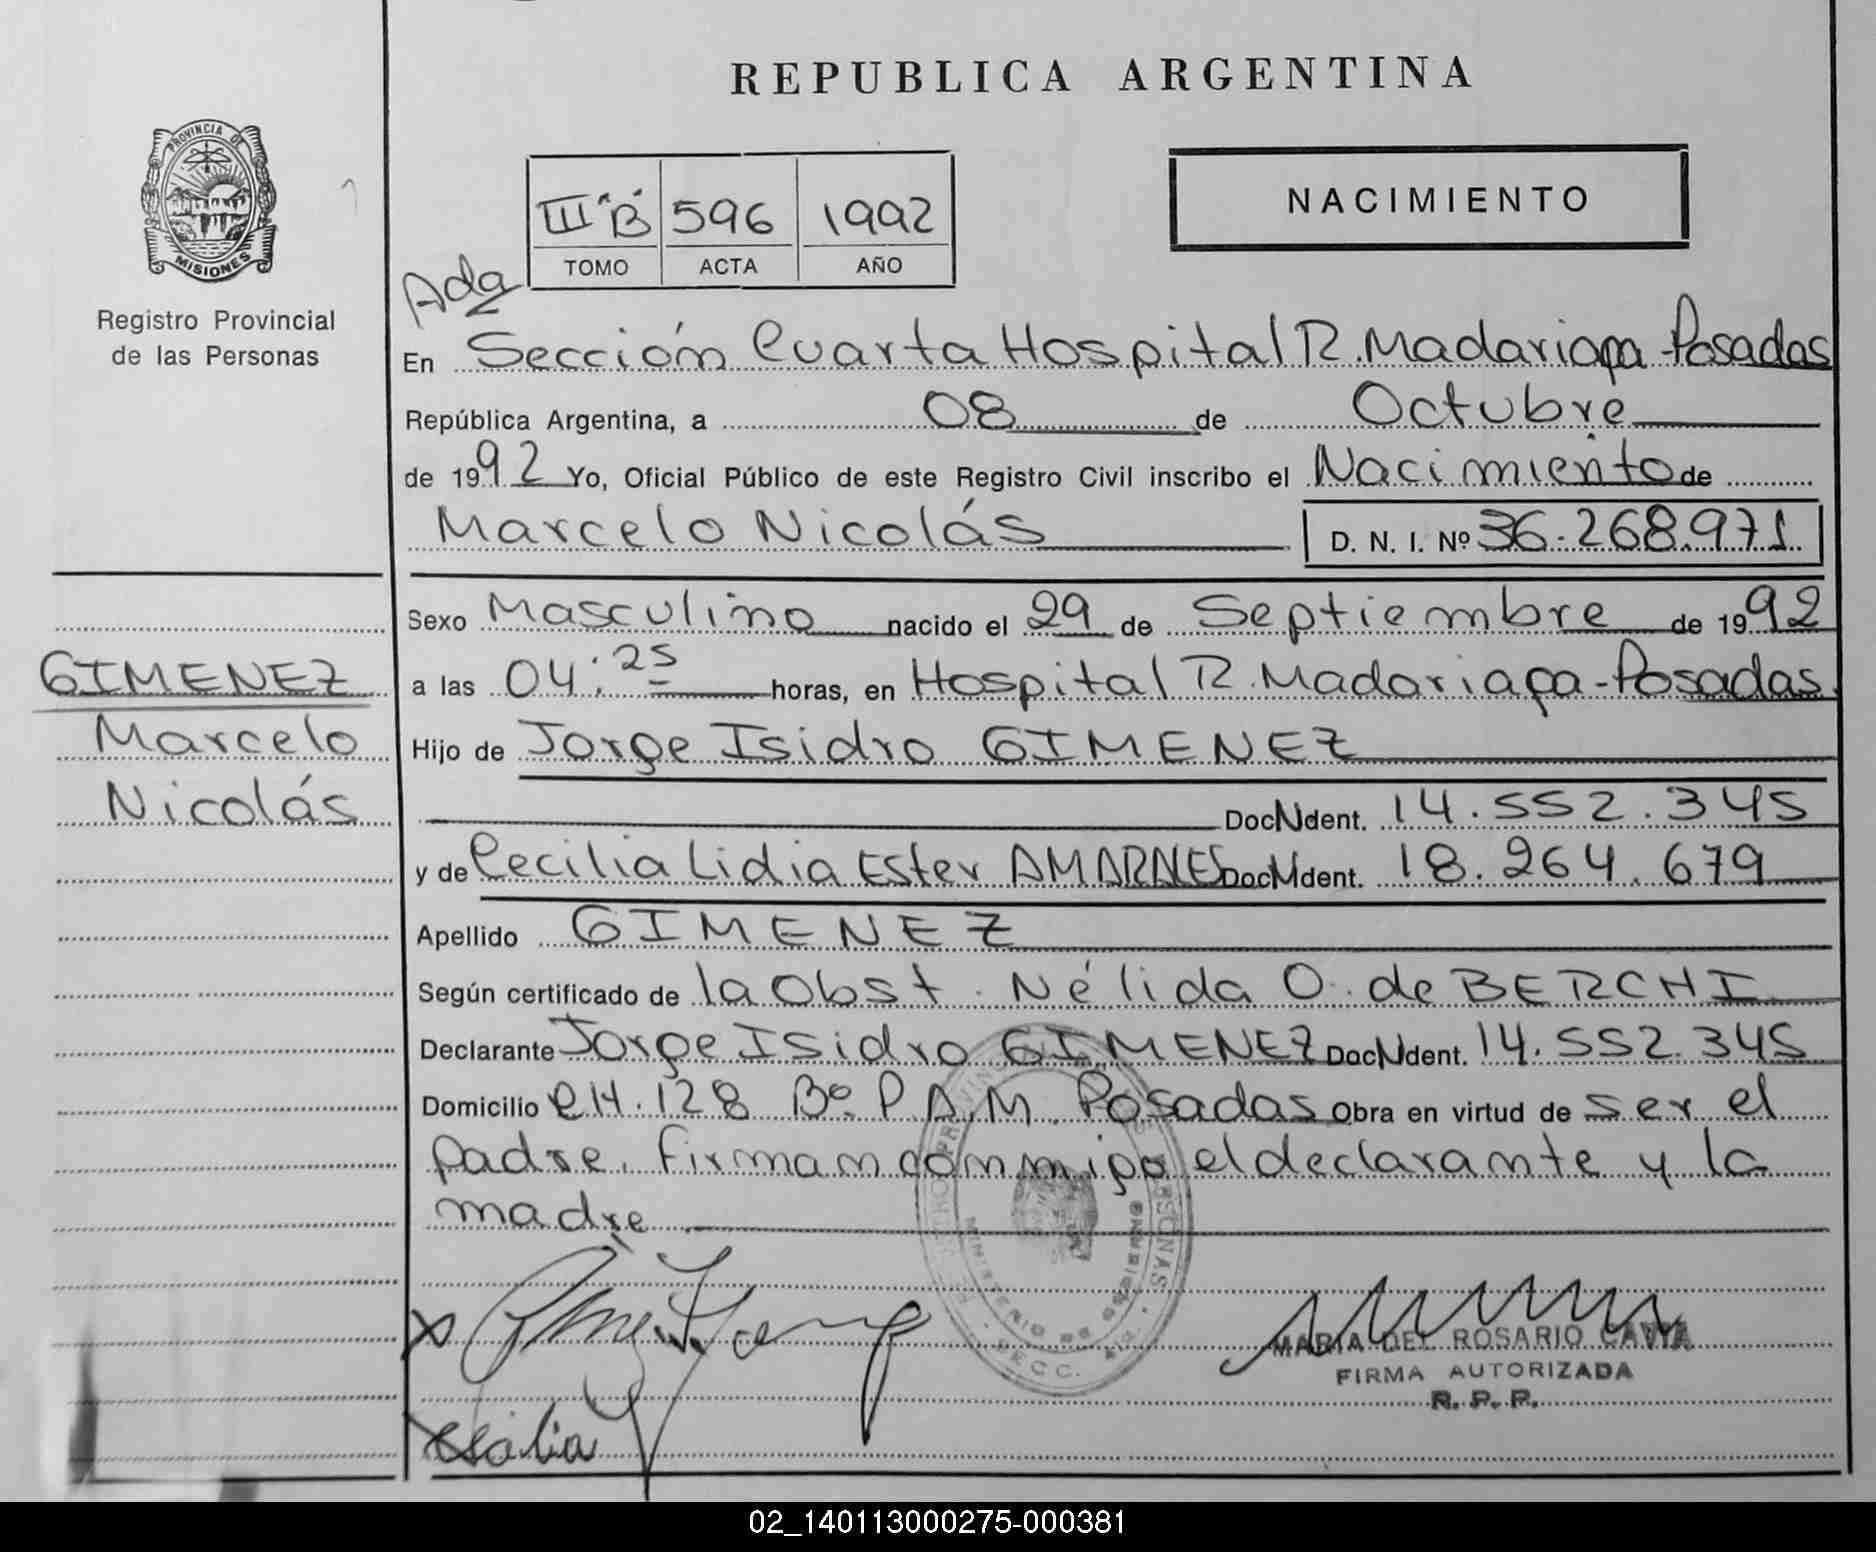 REPUBLICA ARGENTINA
PROVINCIA DE
MISIONES
Registro Provincial
de las Personas
III "B" 596 1992
TOMO ACTA AÑO
NACIMIENTO
Ada
En Sección Cuarta Hospital R. Madariaga - Posadas
República Argentina, a 08 de Octubre
de 1992 Yo, Oficial Público de este Registro Civil inscribo el Nacimiento de
Marcelo Nicolás D. N. I. Nº 36.268.971
Sexo Masculino nacido el 29 de Septiembre de 1992
GIMENEZ
Marcelo
Nicolás
a las 04:25 horas, en Hospital R. Madariaga - Posadas
Hijo de Jorge Isidro GIMENEZ
Doc N Ident. 14.552.345
y de Cecilia Lidia Ester Doc N Ident. 18.264.679
Apellido GIMENEZ
Según certificado de la Obst. Nélida O. de BERCHI
Declarante Jorge Isidro GIMENEZ Doc N Ident. 14.552.345
Domicilio CH. 128 Bº. P.A.M. Posadas Obra en virtud de ser el
padre. Firman conmigo el declarante y la
madre
MINISTERIO DE GOBIERNO
MARIA DEL ROSARIO
FIRMA AUTORIZADA
R. P. P.
02_140113000275-000381